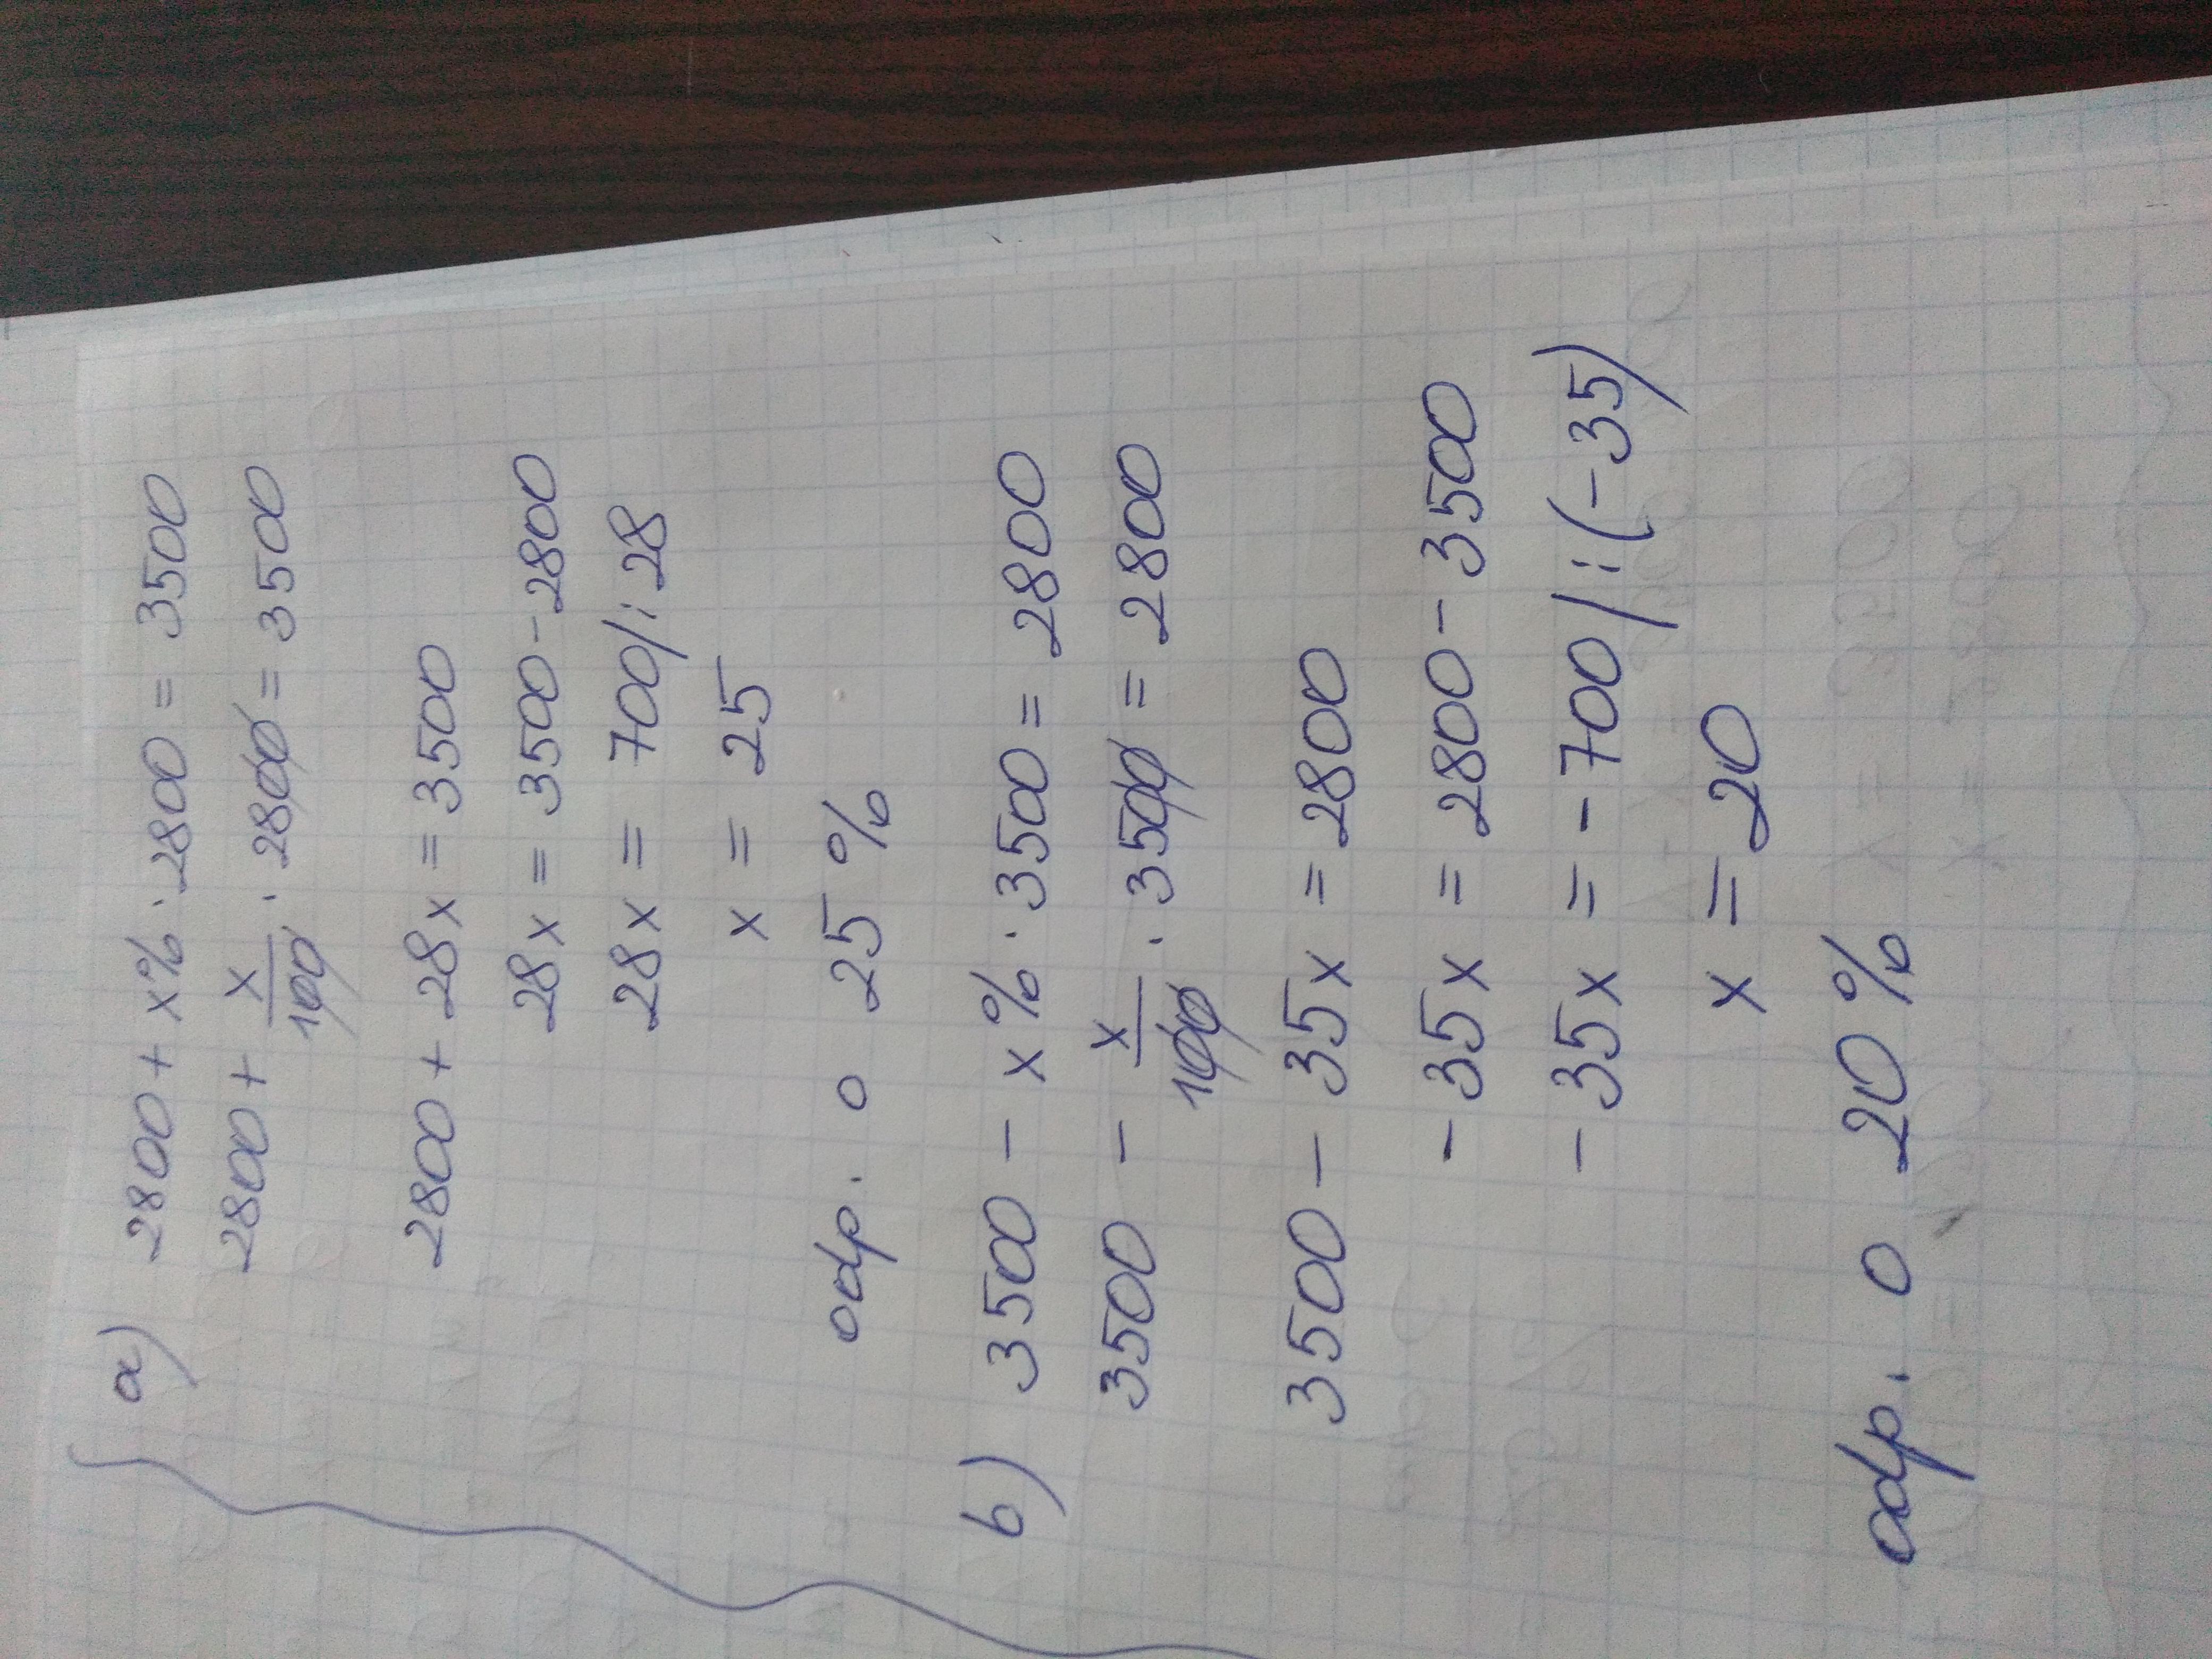 a) 2800 + x% · 2800 = 3500
2800 + x/100 · 2800 = 3500
2800 + 28x = 3500
28x = 3500 - 2800
28x = 700 /: 28
x = 25
odp. o 25 %
b) 3500 - x% · 3500 = 2800
3500 - x/100 · 3500 = 2800
3500 - 35x = 2800
- 35x = 2800 - 3500
- 35x = - 700 / : (-35)
x = 20
odp. o 20 %